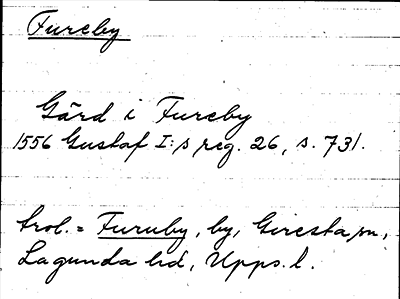 Fureby
Gård i Fureby
1556 Gustaf I:s reg. 26, s. 731.
trol. = Furuby, by, Giresta sn,
Lagunda hd, Upps. l.